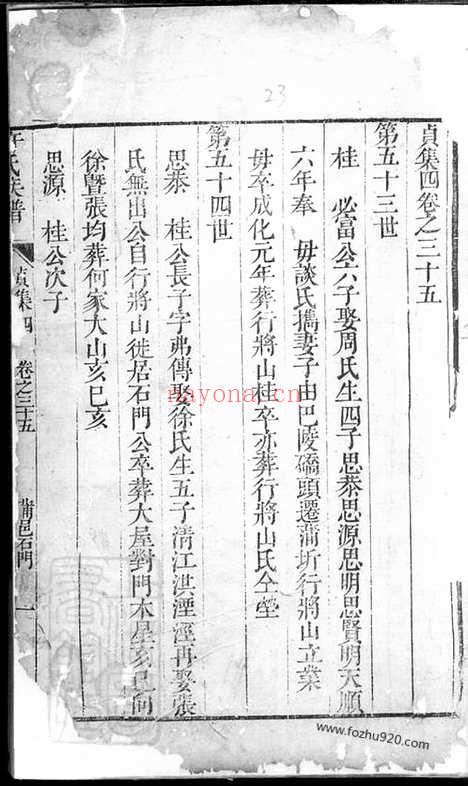 23
貞集四卷之三十五
第五十三世
桂　必富公六子娶周氏生四子思恭思源思明思賢明天順
六年奉　毋談氏攜妻子由巴陵礄頭遷蒲圻行將山立業
毋卒成化元年葬行將山桂卒亦葬行將山氏仝塋
第五十四世
思恭　桂公長子字弗傳娶徐氏生五子清江洪湮涇再娶張
氏無出公自行將山徙居石門公卒葬大屋對門木星亥巳向
徐暨張均葬何家大山亥巳亥
思源　桂公次子
氏族譜　貞集四　卷之三十五　蒲邑石門　一
nayona.cn
www.fozhu920.com